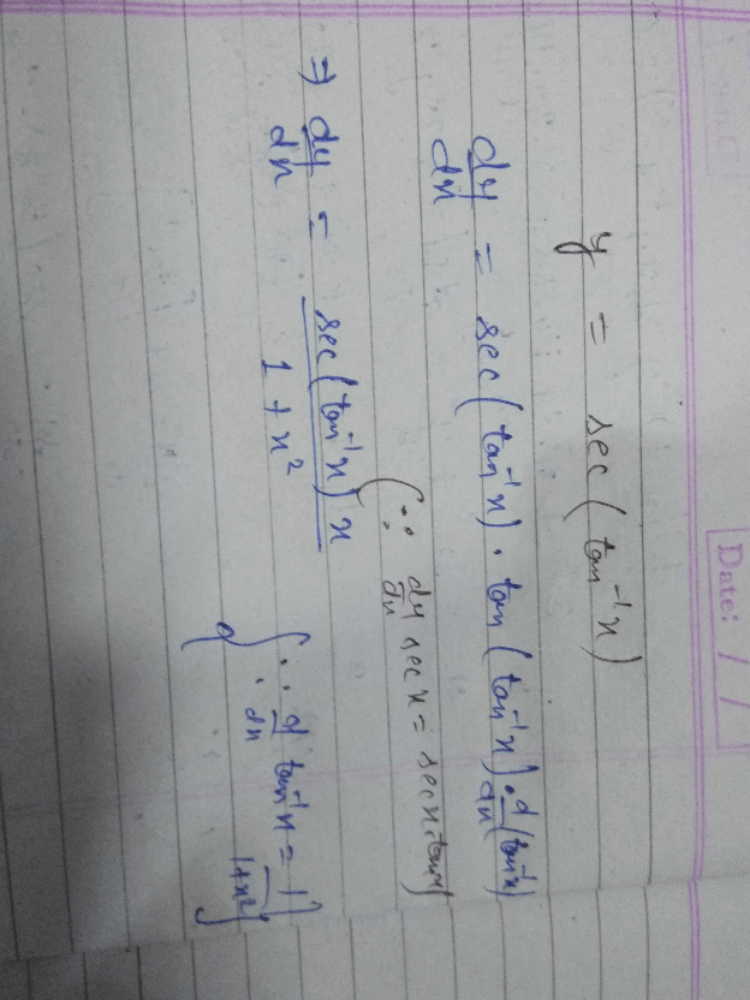 Date: / /
y = sec(tan⁻¹x)
dy/dx = sec(tan⁻¹x) · tan(tan⁻¹x) · d/dx(tan⁻¹x)
(∵ dy/dx sec x = sec x · tan x)
⇒ dy/dx = sec(tan⁻¹x) x / 1 + x²
{∵ d/dx tan⁻¹x = 1/1+x²}